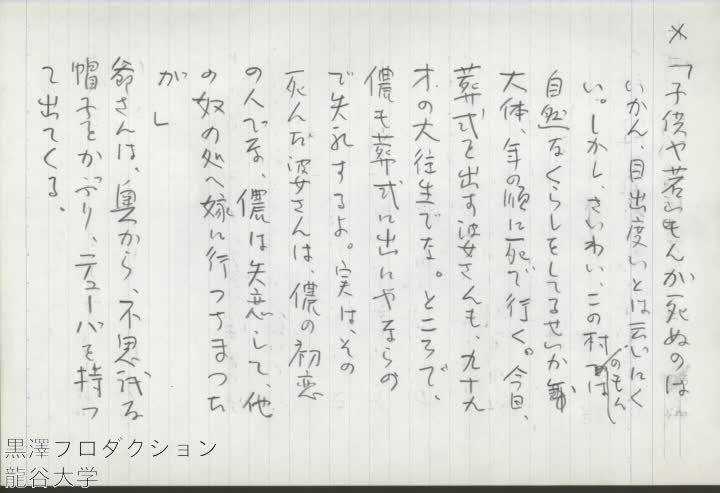 ×「子供や若いもんが死ぬのは
いかん、目出度いとは云いにく
い。しかし、さいわい、この村のもんは
自然なくらしをしてるせいか
大体、年の順に死で行く。今日、
葬式を出す婆さんも、九十九
才の大往生でな。ところで、
儂も葬式に出にやならの
で失礼するよ。実は、その
死んだ婆さんは、儂の初恋
の人でな、儂は失恋して、他
の奴の処へ嫁に行つちまつた
が」
爺さんは、奥から、不思議な
帽子をかぶり、テューバを持つ
て出てくる、
黒澤フロダクション
龍谷大学